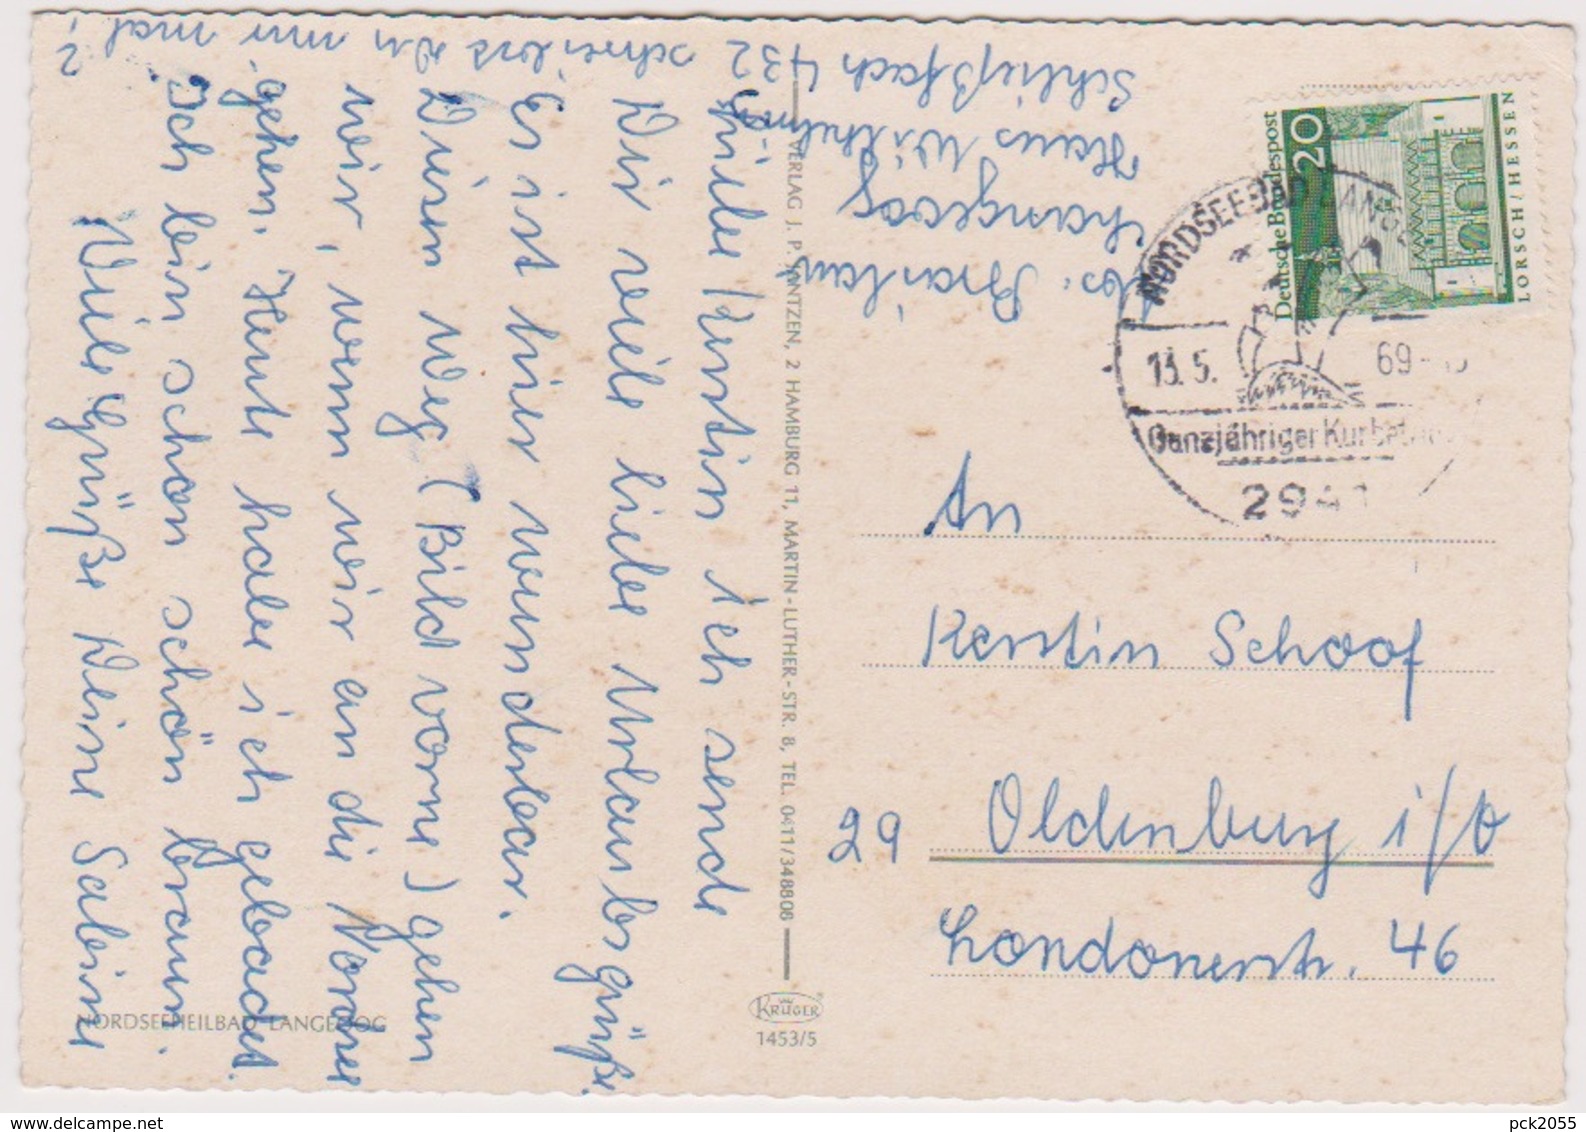 Liebe Kerstin ich sende
Dir viele liebe Urlaubsgrüße.
Es ist hier wunderbar.
Diesen Weg (Bild vorne) gehen
wir, wenn wir an die Nordsee
gehen. Heute habe ich gebadet.
Ich bin schon schön braun.
Viele Grüße Deine Sabine
schreibst du mir mal?
Abs.
Langeoog
Haus Wilhelm
Schließfach 432
VERLAG J. P. JANTZEN, 2 HAMBURG 11, MARTIN-LUTHER-STR. 8, TEL. 0411/348806
KRÜGER
1453/5
NORDSEEHEILBAD LANGEOOG
Deutsche Bundespost
20
LORSCH/HESSEN
NORDSEEBAD LANGEOOG
13.5.
69
Ganzjähriger Kurbetrieb
2941
An
Kerstin Schoof
29 Oldenburg i/O
Londonerstr. 46
www.delcampe.net
pck2055